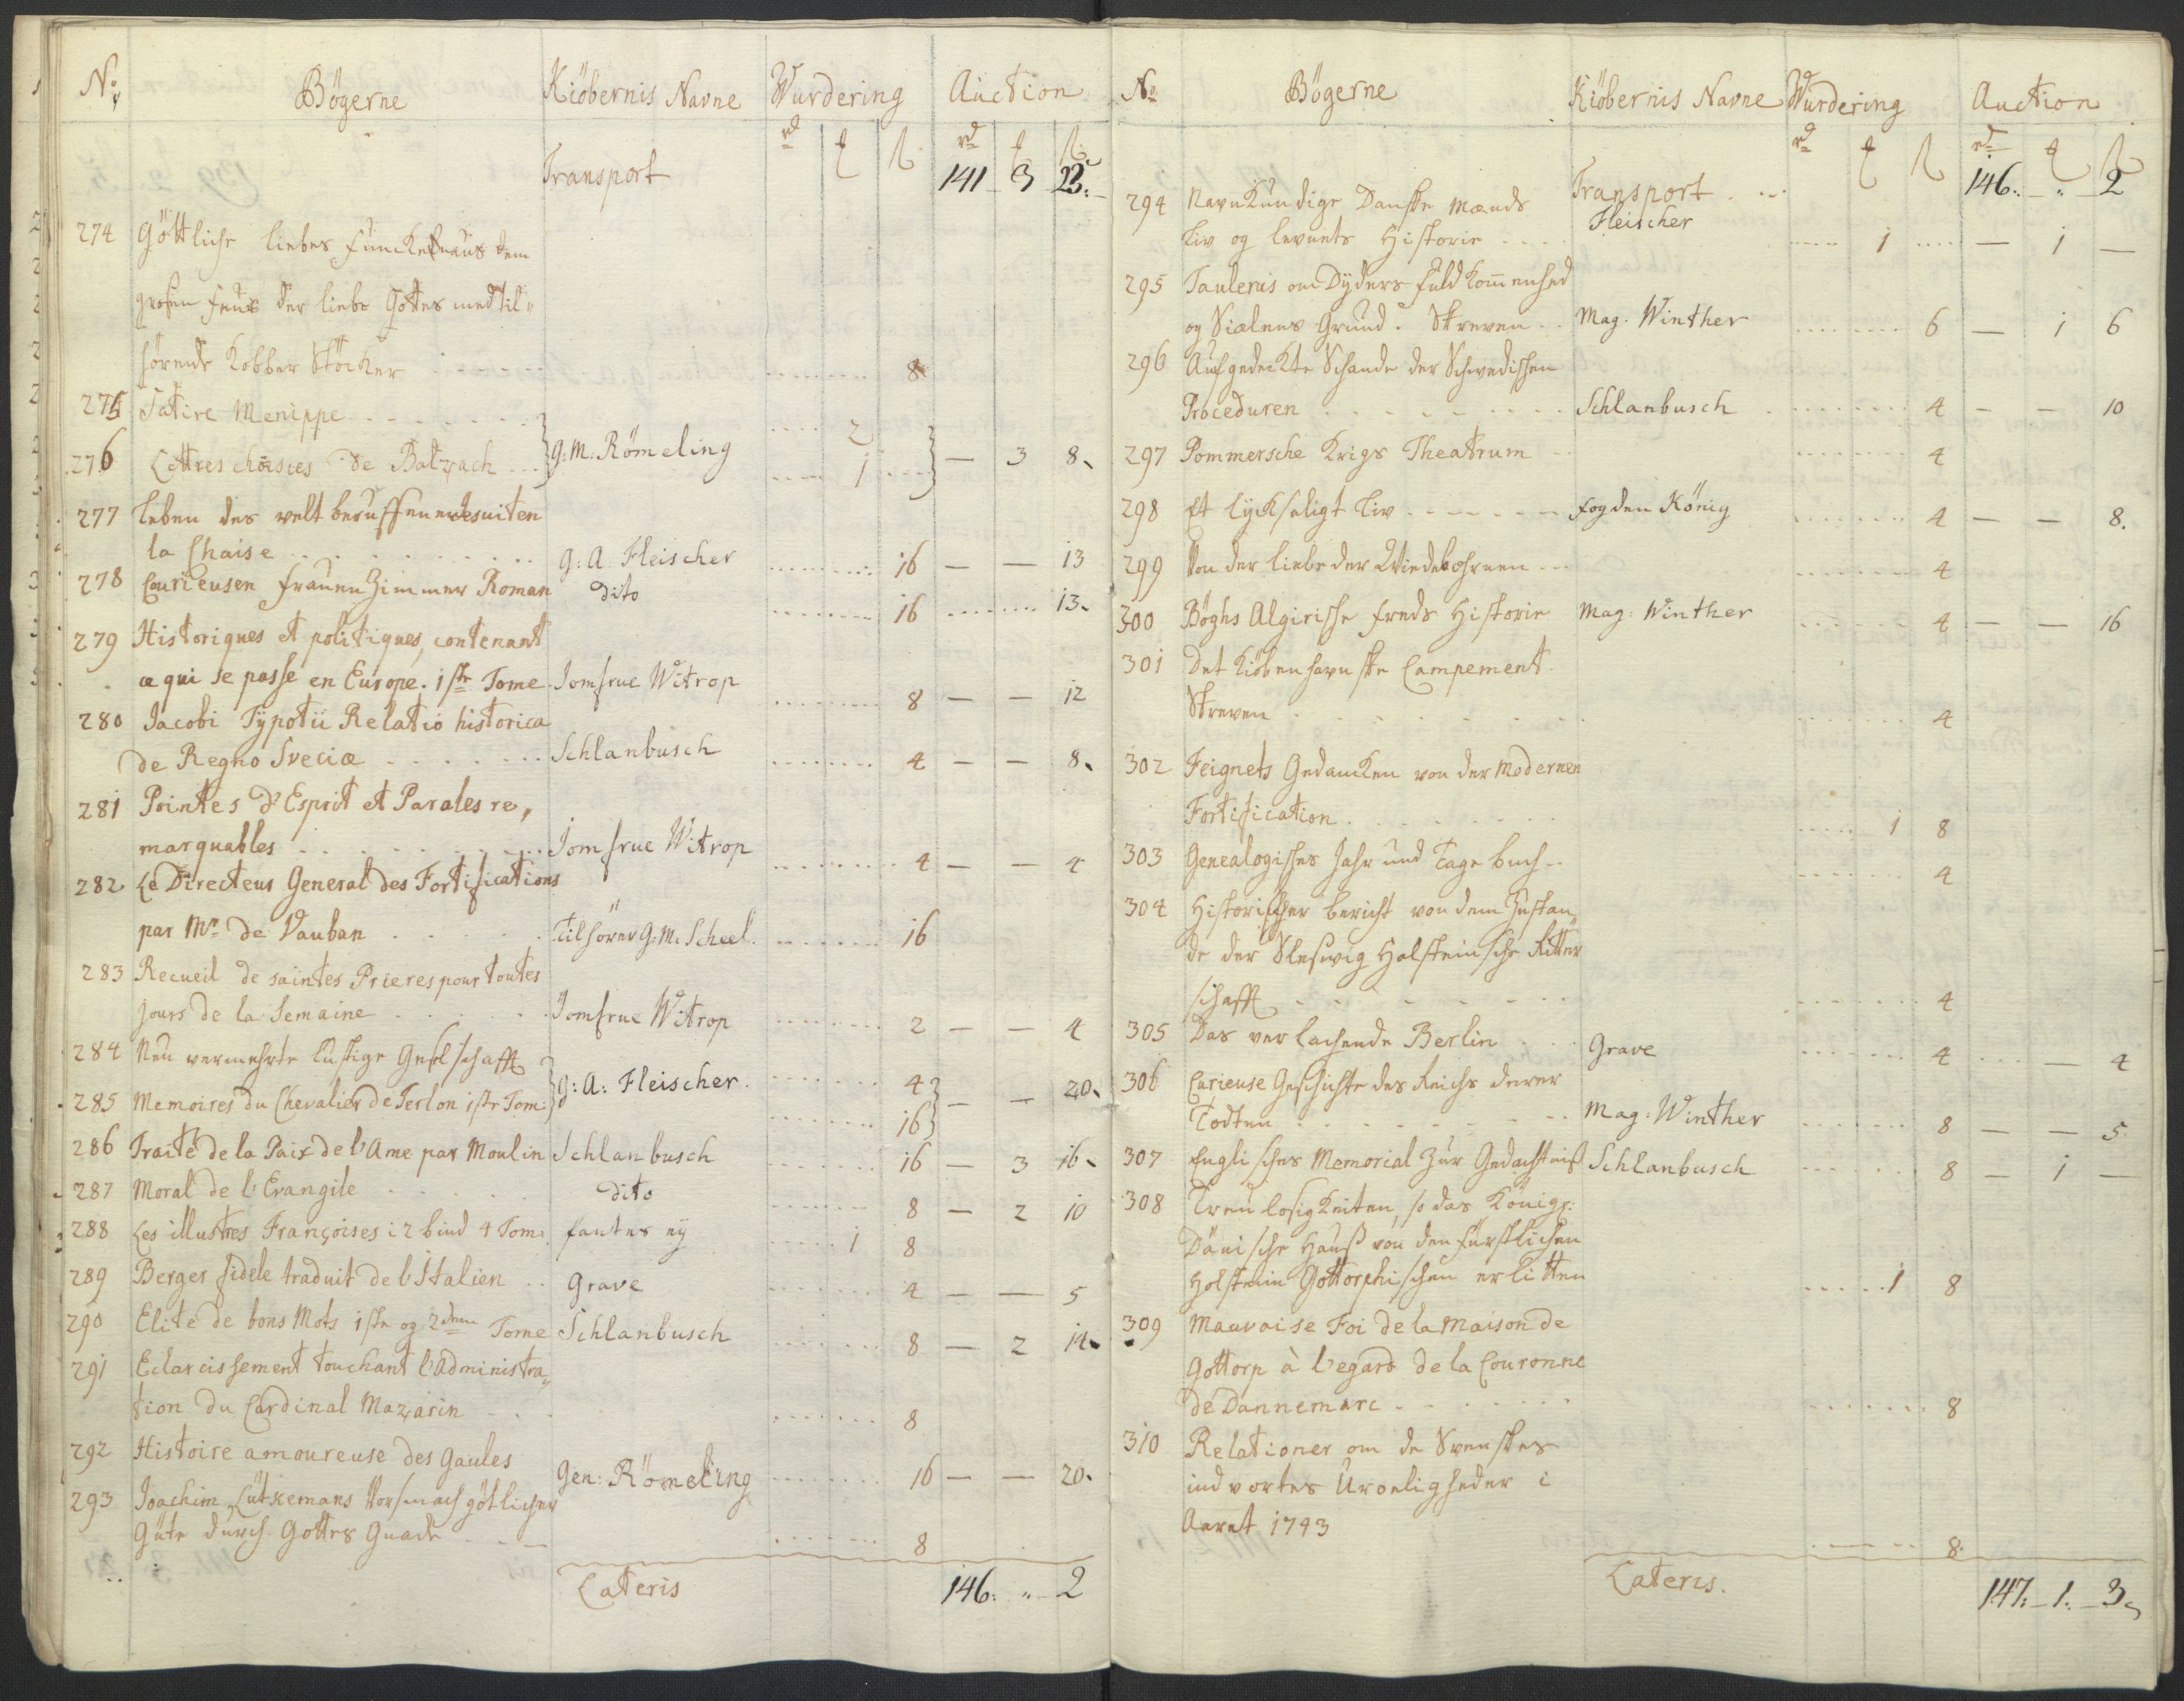 No Bøgerne Kiøbernis Navne Vurdering Auction
rd ß rd
Transport 141 3 23.
274 Göttliche liebes funcken aus dem
grosen feur der liebe Gottes med til„
hørende Kobber Stöcker 8
275 Satire Menippe 2
276 Lettres choisies de Balzach G: M: Römeling 1 — 3 8.
277 Leben des welt beruffenen Jesuiten
la Chaise G: A Fleischer 16 — — 13
278 Courieusen frauenZimmer Roman dito 16 13.
279 Historiques et politiques, contenant
ce qui se passe en Europe. 1ste Tome Jomfrue Witrop 8 — — 12
280 Jacobi Typotii Relatio historica
de Regno Sveciæ Schlanbusch 4 — — 8.
281 Pointes d'Esprit et Paroles re„
marquables Jomfrue Witrop 4 — — 4
282 Le Directeur General des Fortifications
par Mr. de Vauban Tilhører G: M: Scheel. 16
283 Recueil de saintes Prieres pour toutes
jours de la Semaine Jomfrue Witrop 2 — — 4
284 Neu vermehrte lustige Geselschafft 4
285 Memoires du Chevalier de Terlon 1ste Tom: G: A: Fleischer. 16 — — 20.
286 Traite de la Paix de l'Ame par Moulin Schlanbusch 16 — 3 16.
287 Moral de l'Evangile dito 8 — 2 10
288 Les illustres Françoises i 2 bind 4 Tom: fantes ey 1 8
289 Berger fidele traduit de l'Italien Grave 4 — — 5
290 Elite de bons Mots 1ste og 2den Tome Schlanbusch 8 — 2 14.
291 Eclarcissement touchant l'administra„
tion du Cardinal Mazarin 8
292 Histoire amoureuse des Gaules Gen: Römeling 16 — — 20.
293 Joachim Lütkemans Vorsmach götlicher
Güte durch Gottes Gnade 8
Lateris 146: „ 2
No Bøgerne Kiøbernis Navne Vurdering Auction
rd ß rd
Transport 146: „ 2
294 Navnkundige Danske Mænds Fleischer
Liv og levnets Historie 1 — 1 —
295 Taulerus om Dyders fuldkommenhed
og Siælens Grund. Skreven Mag. Winther 6 — 1 6
296 Aufgedeckte Schande der Schwedischen
Proceduren Schlanbusch 4 — — 10
297 Pommersche Krigs Theatrum 4
298 Et lycksaligt Liv fogden König 4 — — 8.
299 Von der liebe der Wiedebohrnen 4
300 Böghs Algiriske freds Historie Mag: Winther 4 — — 16
301 Det Kiøbenhavnske Campement
Skreven 4
302 Feignets Gedancken von der Modernen
Fortification 1 8
303 Genealogisches Jahr und Tage buch 4
304 Historischer bericht von dem Zustan„
de der Slesvig Holsteinsche Ritter
schafft 4
305 Das verlachende Berlin Grave 4 — 4
306 Curieuse Geschichte des Reichs derer
Todten Mag: Winther 8 — — 5
307 Englisches Memorial zur Gedächtniß Schlanbusch 8 — 1 —
308 Treulosigkeiten, so das Königl:
Dänische Hauß von den fürstlichen
Holstein Gottorphischen erlitten 1 8
309 Mauvaise Foi de la Maison de
Gottorp à l'egard de la Couronne
de Dannemarc 8
310 Relationer om de Svenskes
indvortes Uroeligheder i
Aaret 1743 8.
Lateris. 147: 1. 3